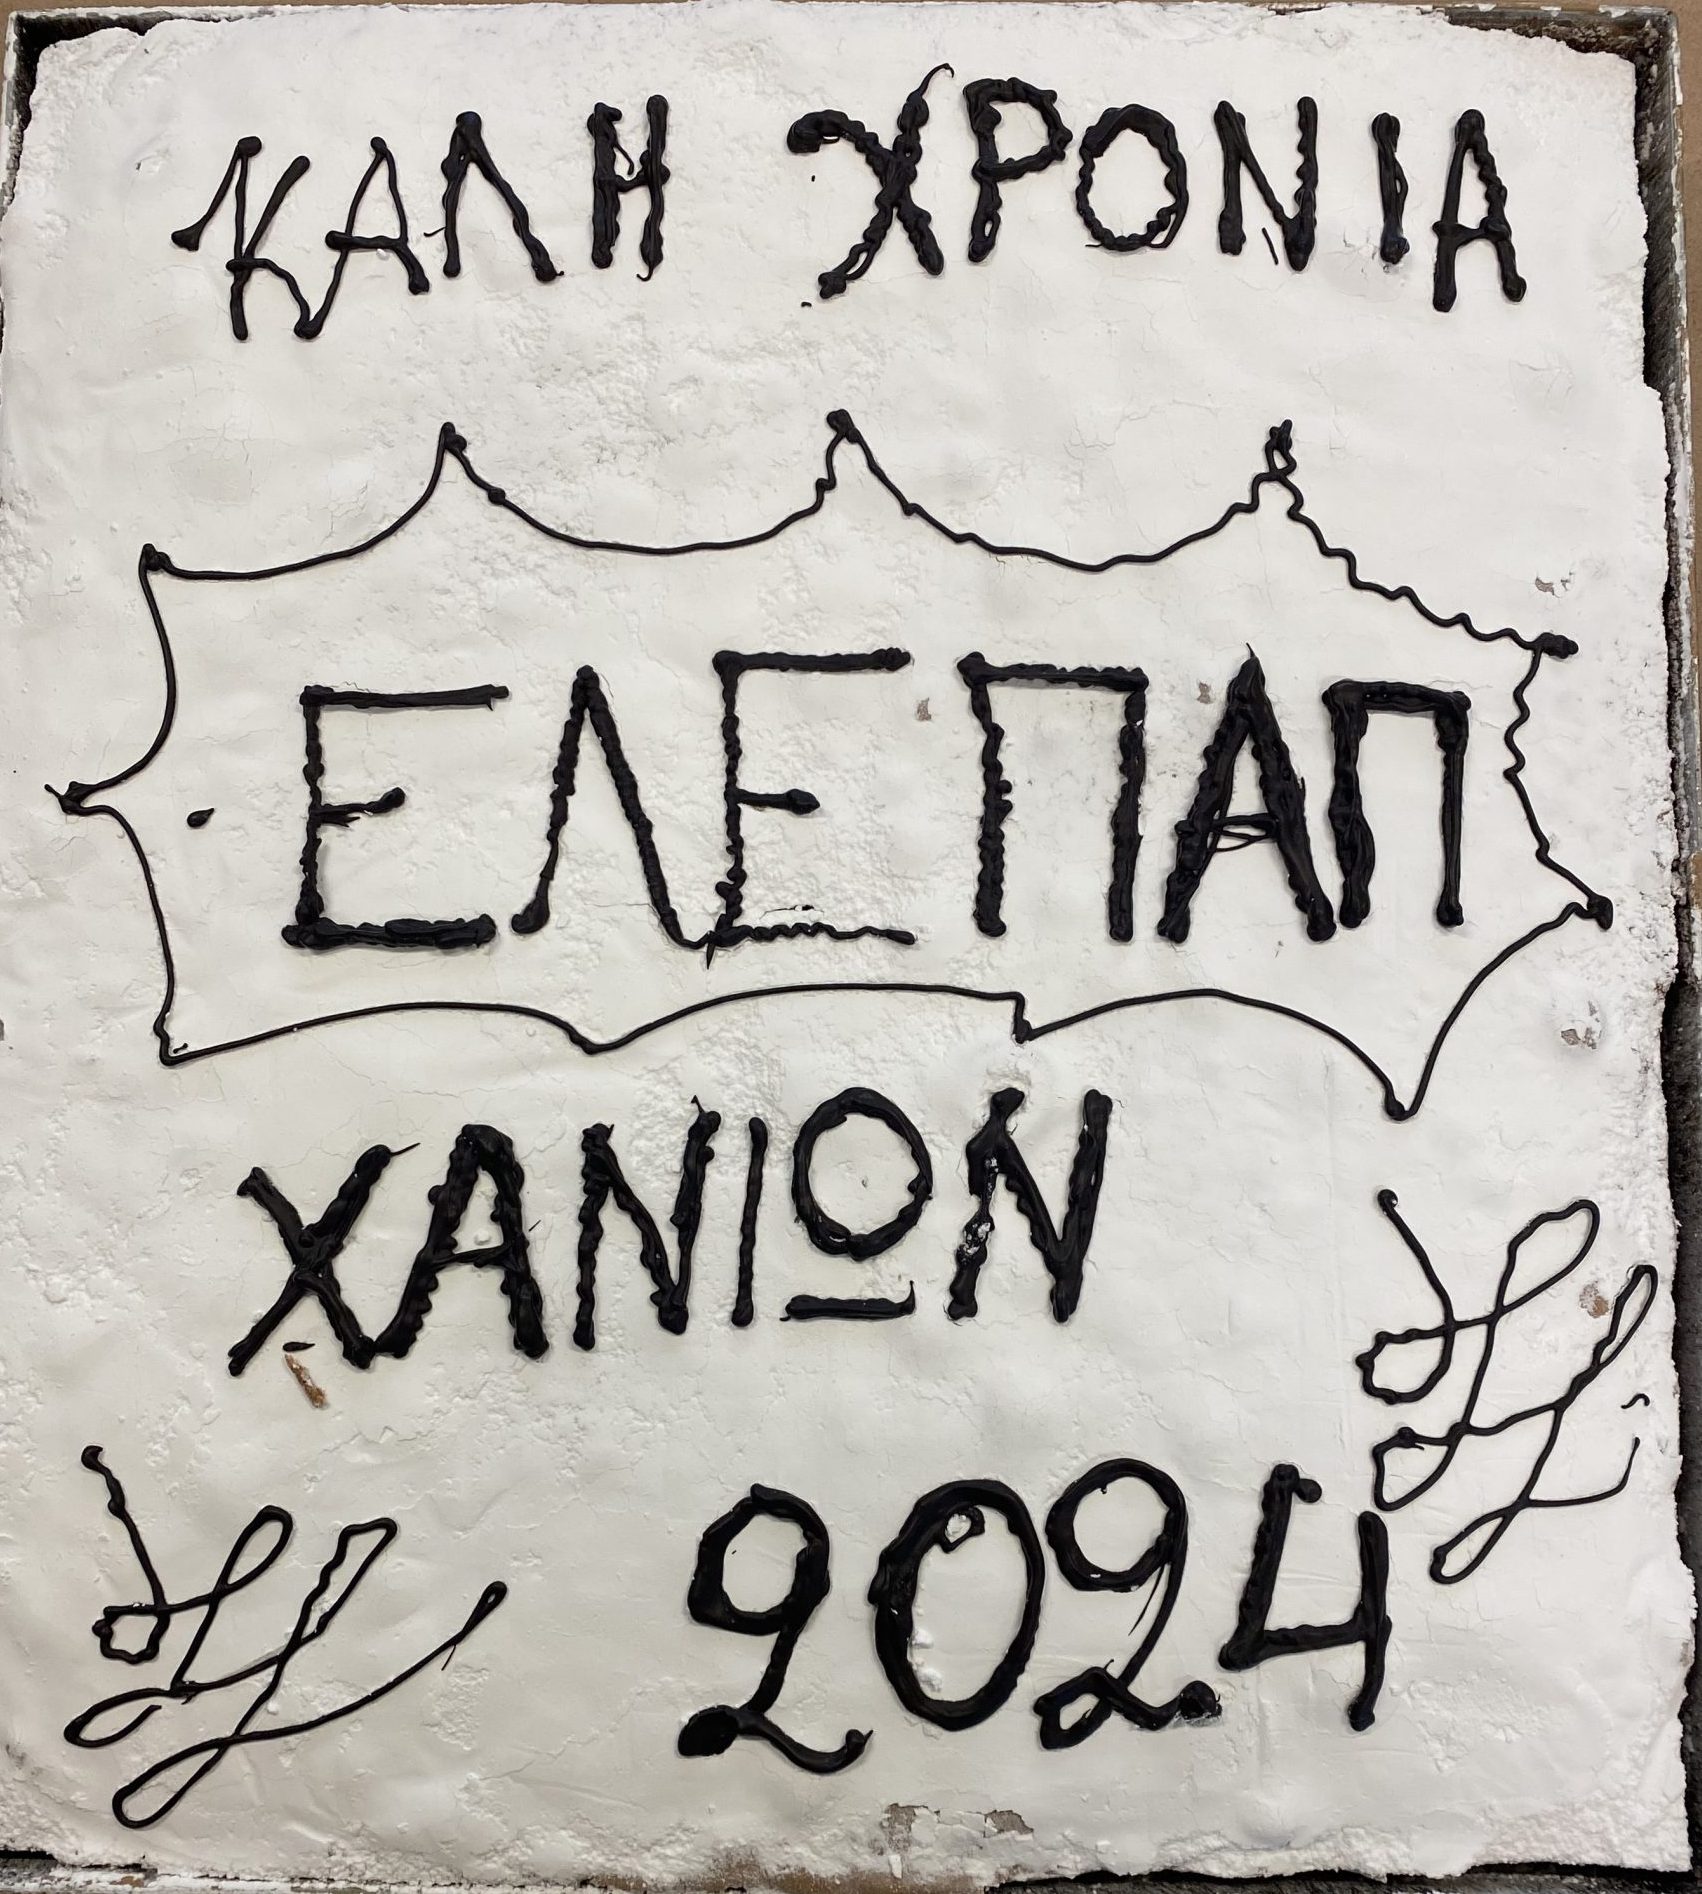 ΚΑΛΗ ΧΡΟΝΙΑ
ΕΛΕΠΑΠ
ΧΑΝΙΩΝ
2024